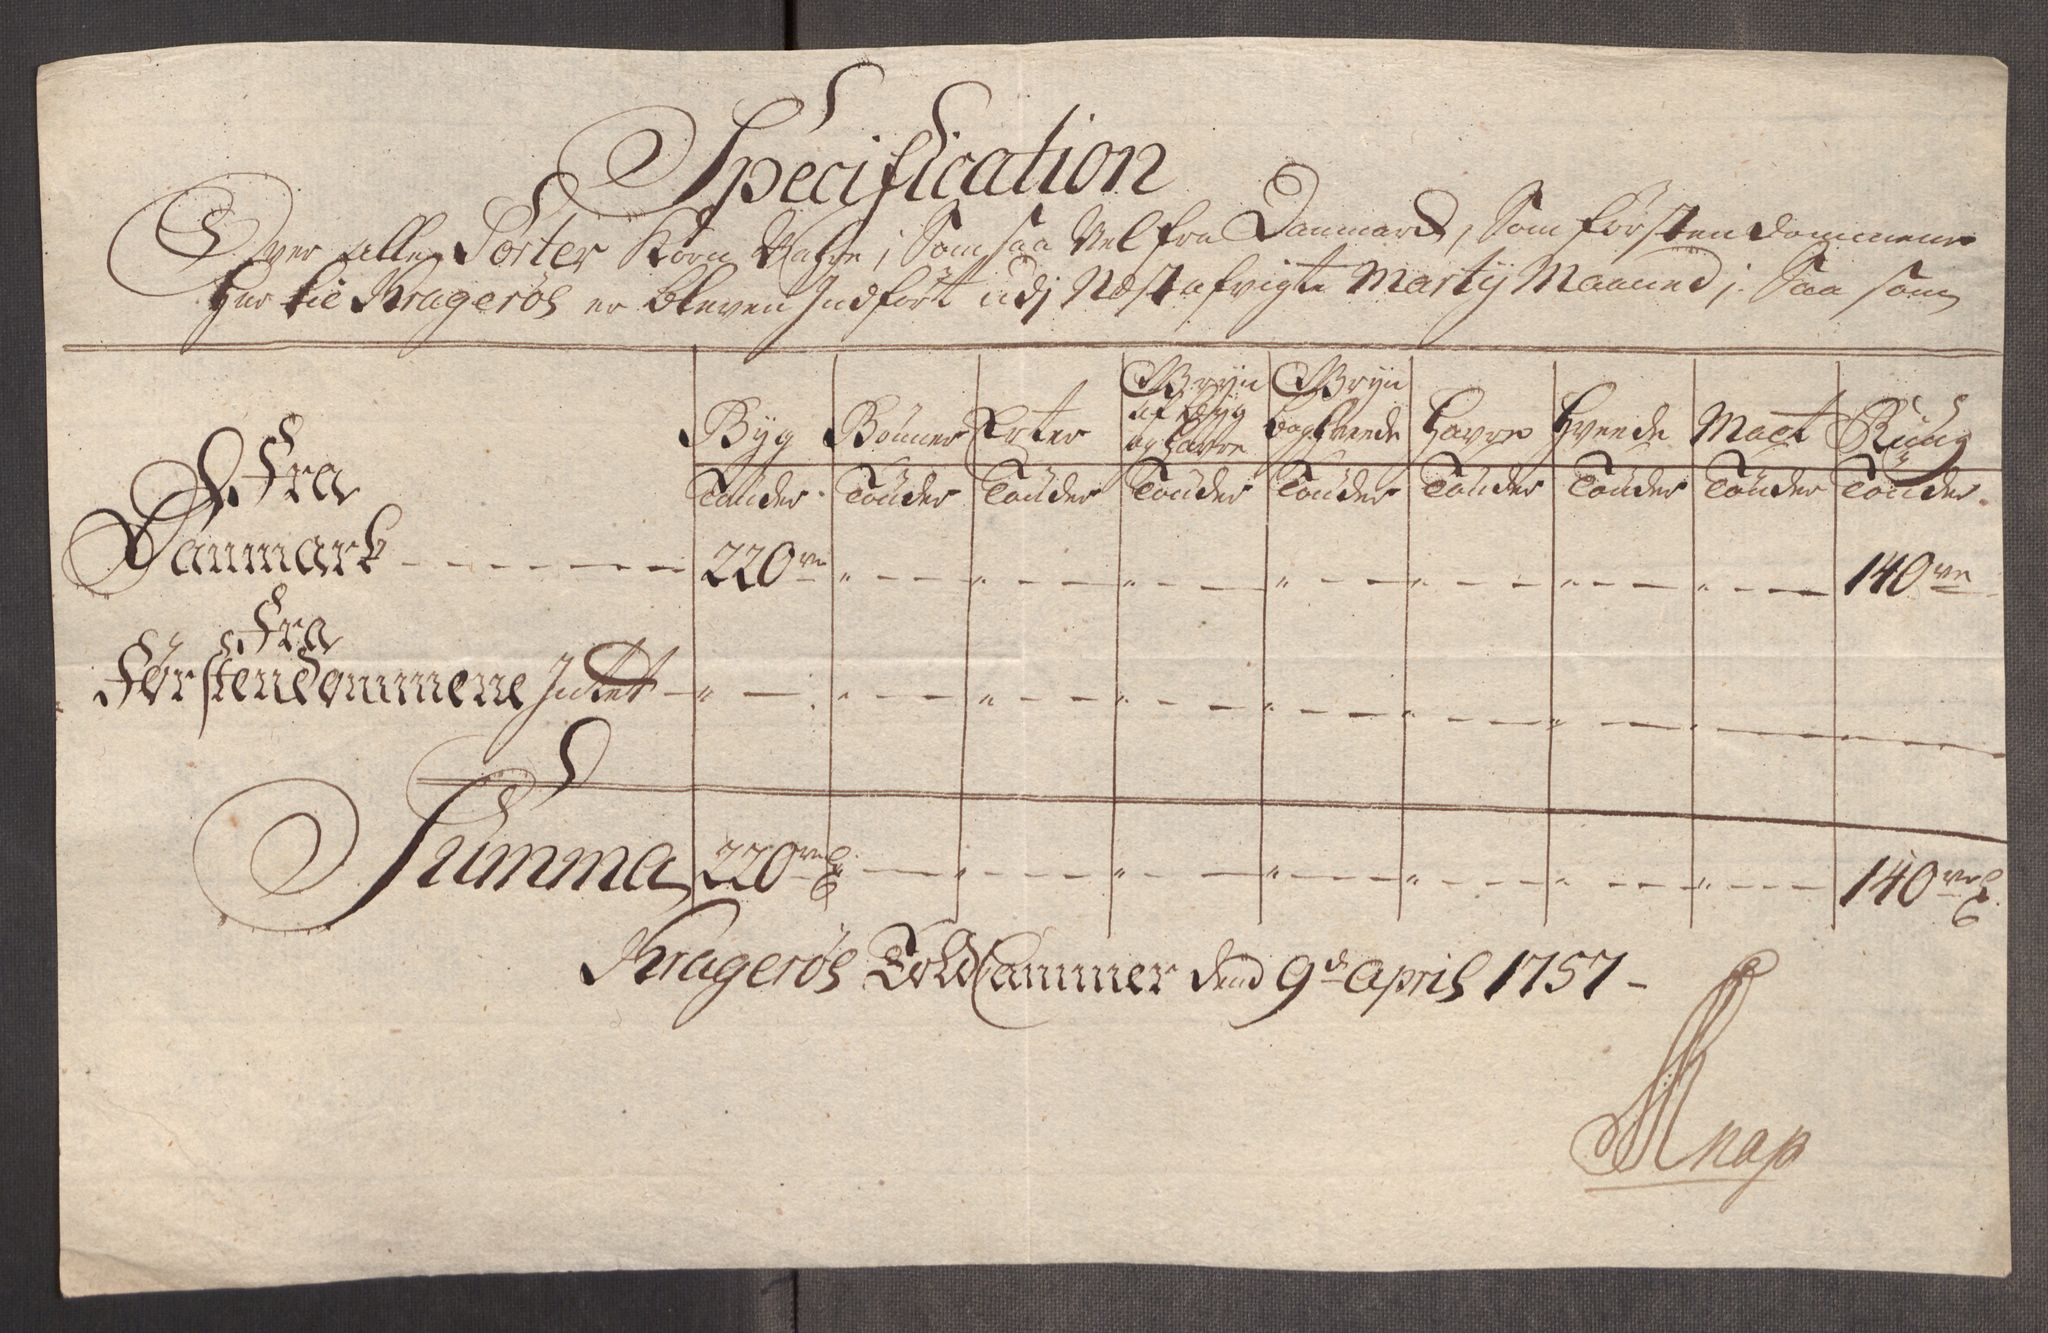 Specification
Over alle Sorter Korn Vahre, Som saa Vel fra Danmarck, Som førstendommene
Her til Kragerøe er bleven Indført udj Næst afvigte Martij Maaned; Saa som
Byg Bönner Erter Gryn af Byg og Havre Gryn boghveede Havre Hveede Malt Rüug
Tønder Tønder Tønder Tønder Tønder Tønder Tønder Tønder Tønder
Fra
Danmark - - - - - - 220 140
Fra
Førstendommene Intet
Summa 220 140
Kragerøe Told Cammer dend 9de April 1757-
Knap